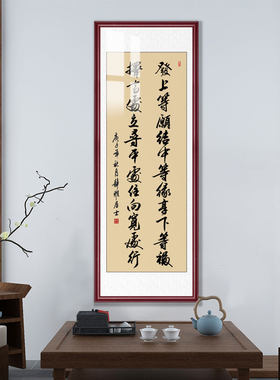 發上等願结中等緣享下等福
擇高處立尋平處住向寬處行
庚子年秋月静居士